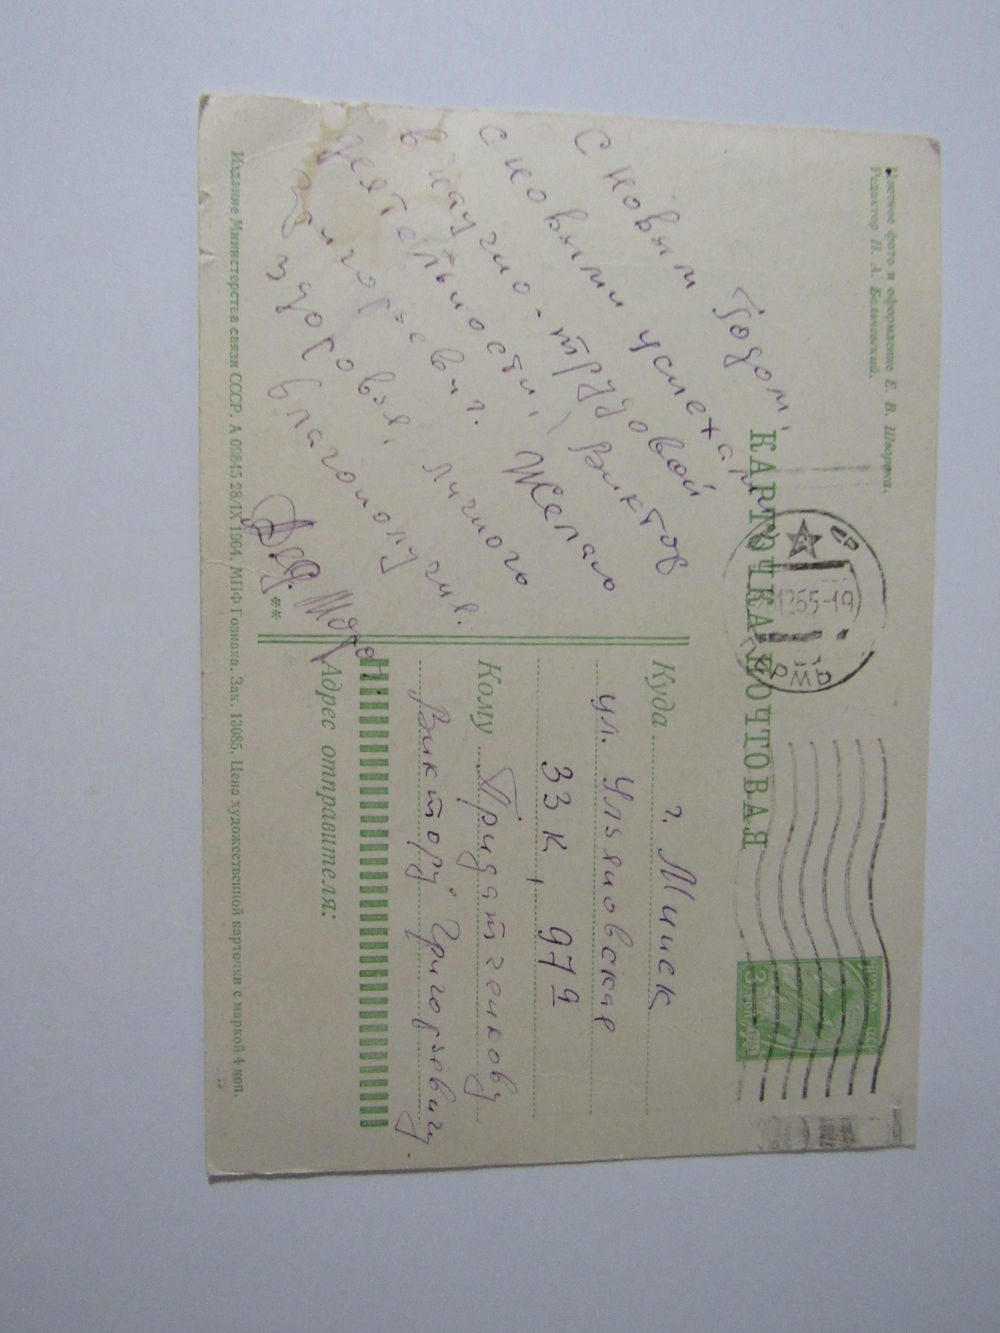 Цветное фото и оформление Е. В. Шворака.
Редактор П. А. Бельчевский.
КАРТОЧКА ПОЧТОВАЯ
С Новым Годом!
С новыми успехами
в научно-трудовой
деятельности, Виктор
Григорьевич. Желаю
здоровья, личного
благополучия.
Дед Мороз.
Куда г. Минск
ул. Ульяновская
33 к, 97а
Кому Придатченкову
Виктору Григорьевичу.
Адрес отправителя:
**
Издание Министерства связи СССР. А 00845 28/IX 1964. МПФ Гознака. Зак. 13085. Цена художественной карточки с маркой 4 коп.